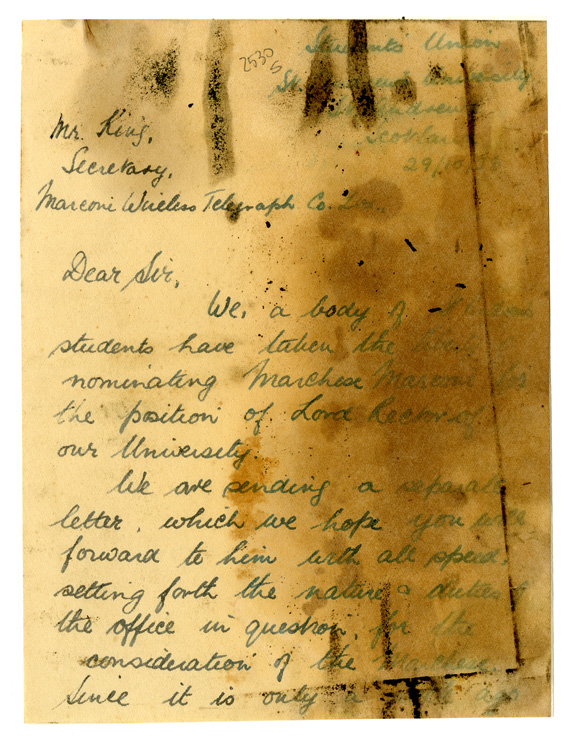 2530
5
Students' Union
St. Andrews University
St. Andrews
Scotland
29/10/33
Mr. King,
Secretary,
Marconi Wireless Telegraph Co. Ltd.,
Dear Sir,
We, a body of
students have taken the
nominating Marchese Marconi
the position of Lord Rector of
our University.
We are sending a separate
letter, which we hope you will
forward to him with all speed,
setting forth the nature & duties of
the office in question, for the
consideration of the Marchese.
Since it is only a